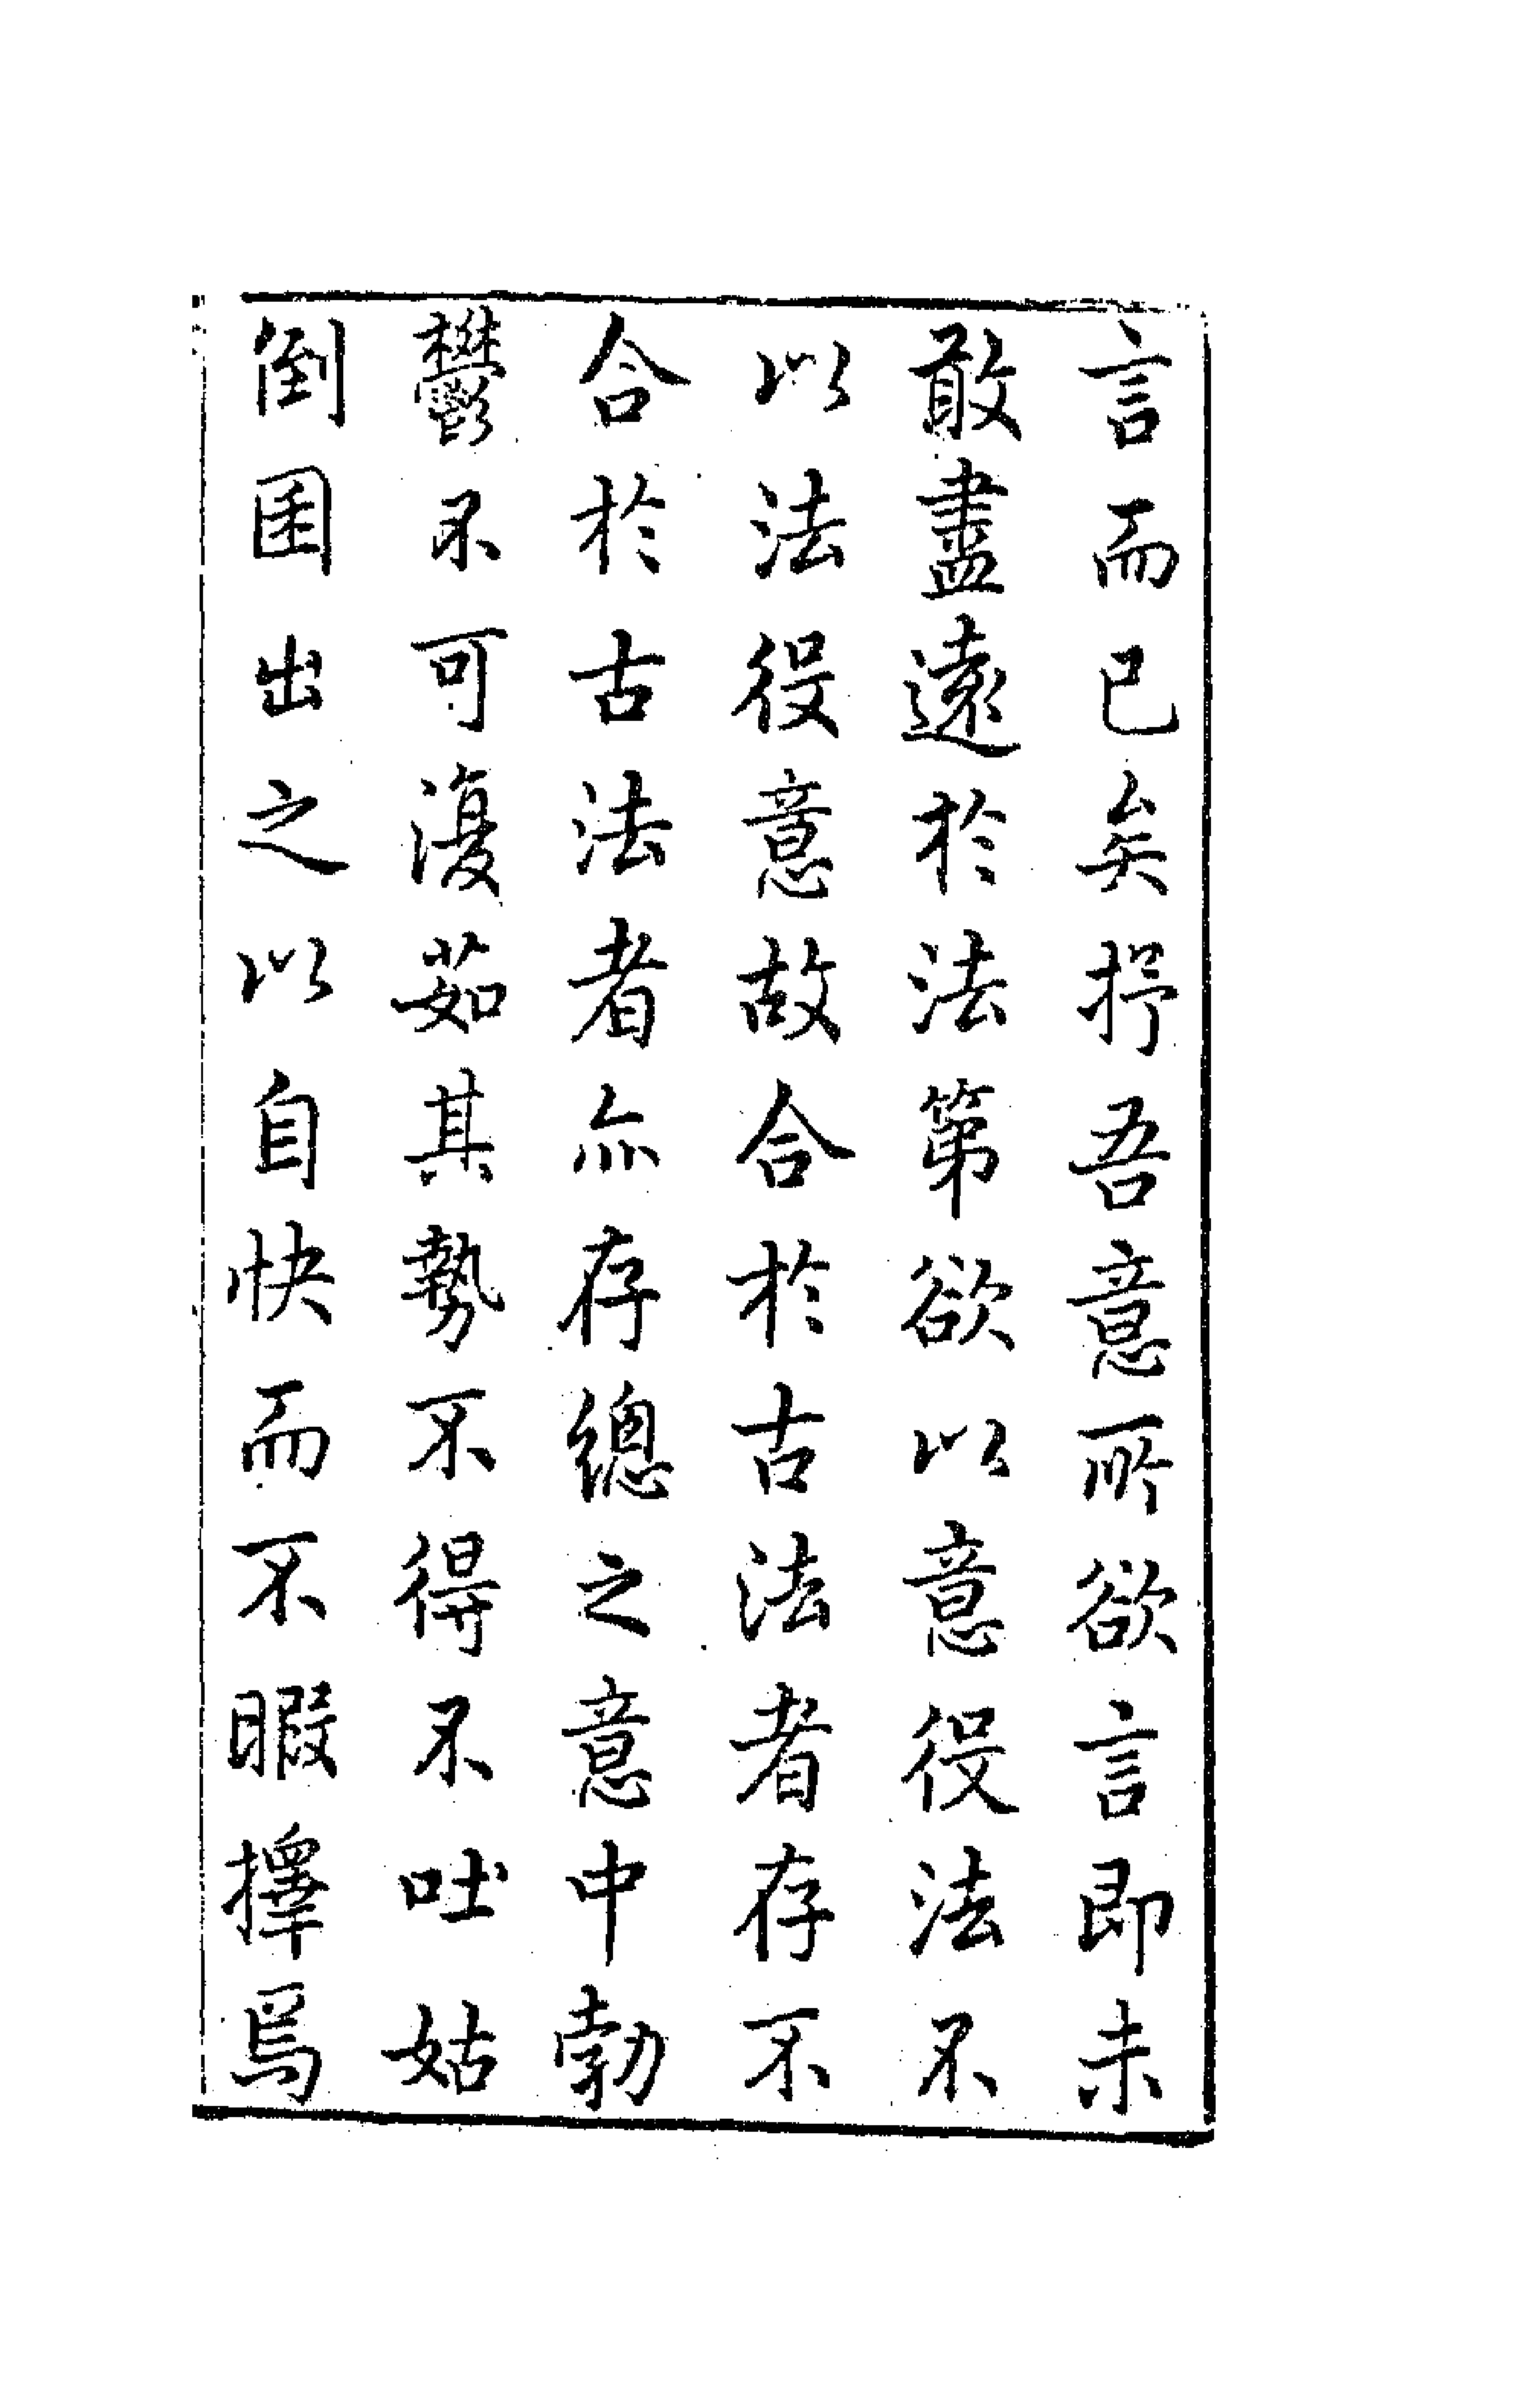 言而已矣抒吾意所欲言即未
敢盡遠於法第欲以意役法不
以法役意故合於古法者存不
合於古法者亦存總之意中勃
鬱不可復茹其勢不得不吐姑
倒囷出之以自快而不暇擇焉